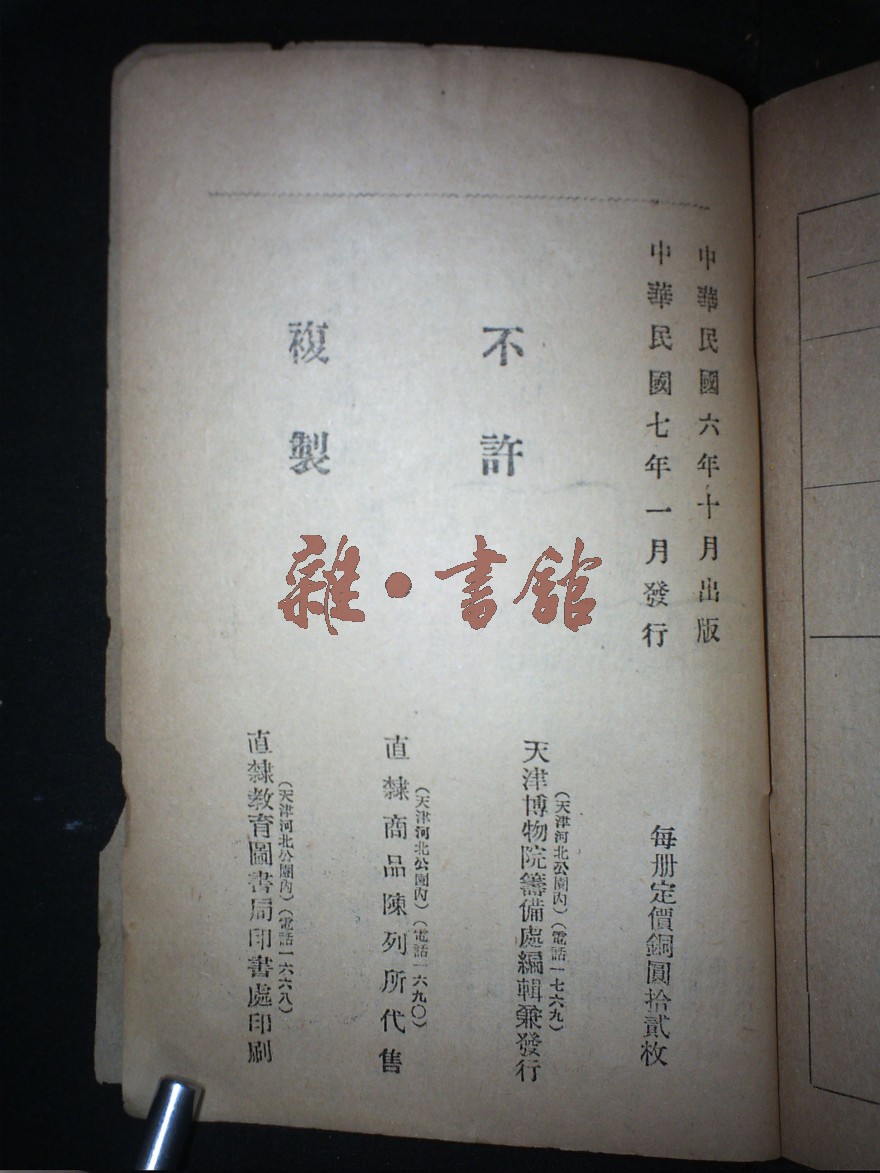 中華民國六年十月出版
中華民國七年一月發行
不許
複製
每册定價銅圓拾貳枚
(天津河北公園內)(電話一七六九)
天津博物院籌備處編輯兼發行
(天津河北公園內)(電話一六九〇)
直隸商品陳列所代售
(天津河北公園內)(電話一六六八)
直隸教育圖書局印書處印刷
雜·書館